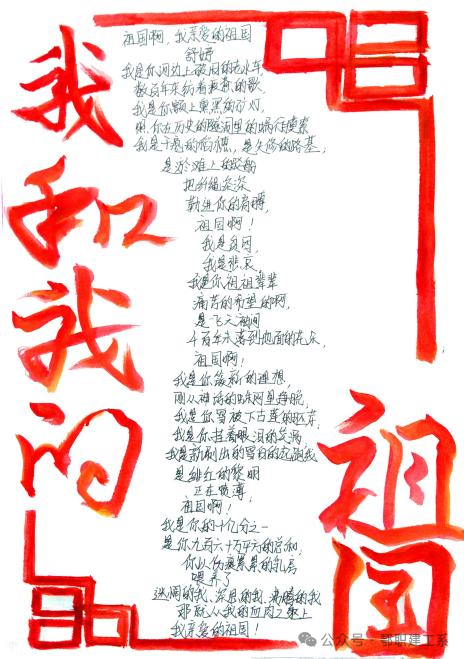 我和我的
祖国
祖国啊,我亲爱的祖国
舒婷
我是你河边上破旧的老水车,
数百年来纺着疲惫的歌,
我是你额上熏黑的矿灯,
照你在历史的隧洞里蜗行摸索
我是干瘪的稻穗,是失修的路基;
是淤滩上的驳船
把纤绳深深
勒进你的肩膊,
祖国啊!
我是贫困,
我是悲哀
我是你祖祖辈辈
痛苦的希望的啊,
是飞天袖间
千百年未落到地面的花朵,
祖国啊!
我是你簇新的理想,
刚从神话的蛛网里挣脱,
我是你雪被下古莲的胚芽
我是你挂着眼泪的笑涡
我是新刷出的雪白的起跑线
是绯红的黎明
正在喷薄,
祖国啊!
我是你的十亿分之一
是你九百六十万平方的总和,
你以伤痕累累的乳房
喂养了
迷惘的我、深思的我、沸腾的我
那就从我的血肉之躯上
我亲爱的祖国!
公众号·鄂职建工系